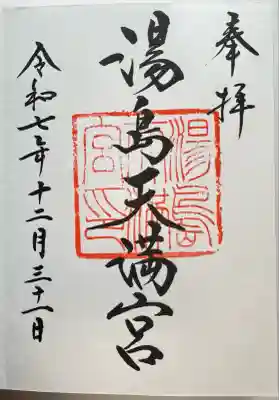 奉拝
湯島天満宮
令和七年十二月三十一日
湯島天満宮印